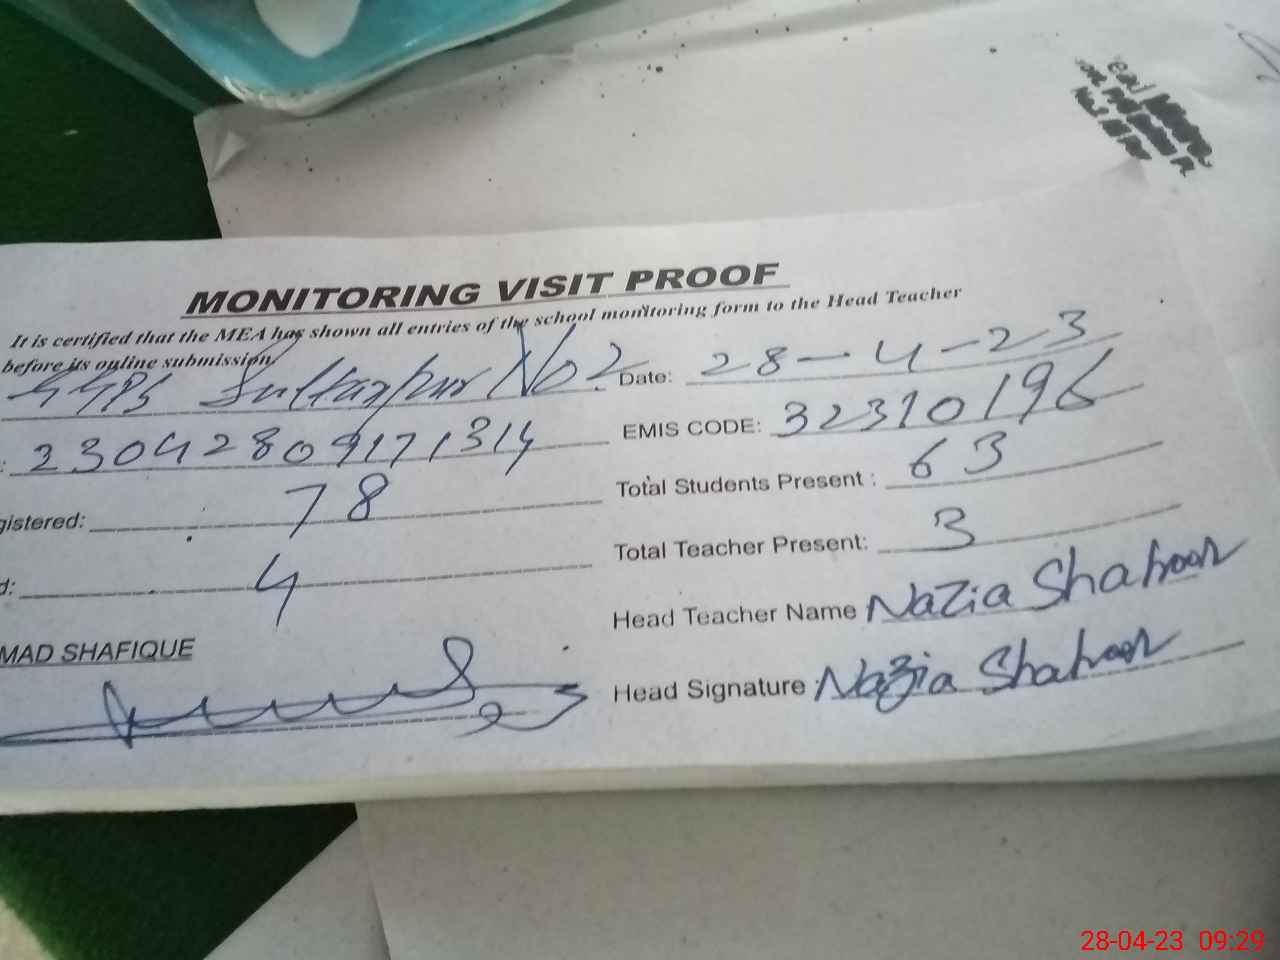 MONITORING VISIT PROOF
It is certified that the MEA has shown all entries of the school monitoring form to the Head Teacher
before its online submission
GGPS Sultanpur No 2 Date: 28-4-23
: 23042809171314 EMIS CODE: 32310196
gistered: 78 Total Students Present : 63
d: 4 Total Teacher Present: 3
Head Teacher Name Nazia Shahnoor
MAD SHAFIQUE
Head Signature Nazia Shahnoor
28-04-23 09:29